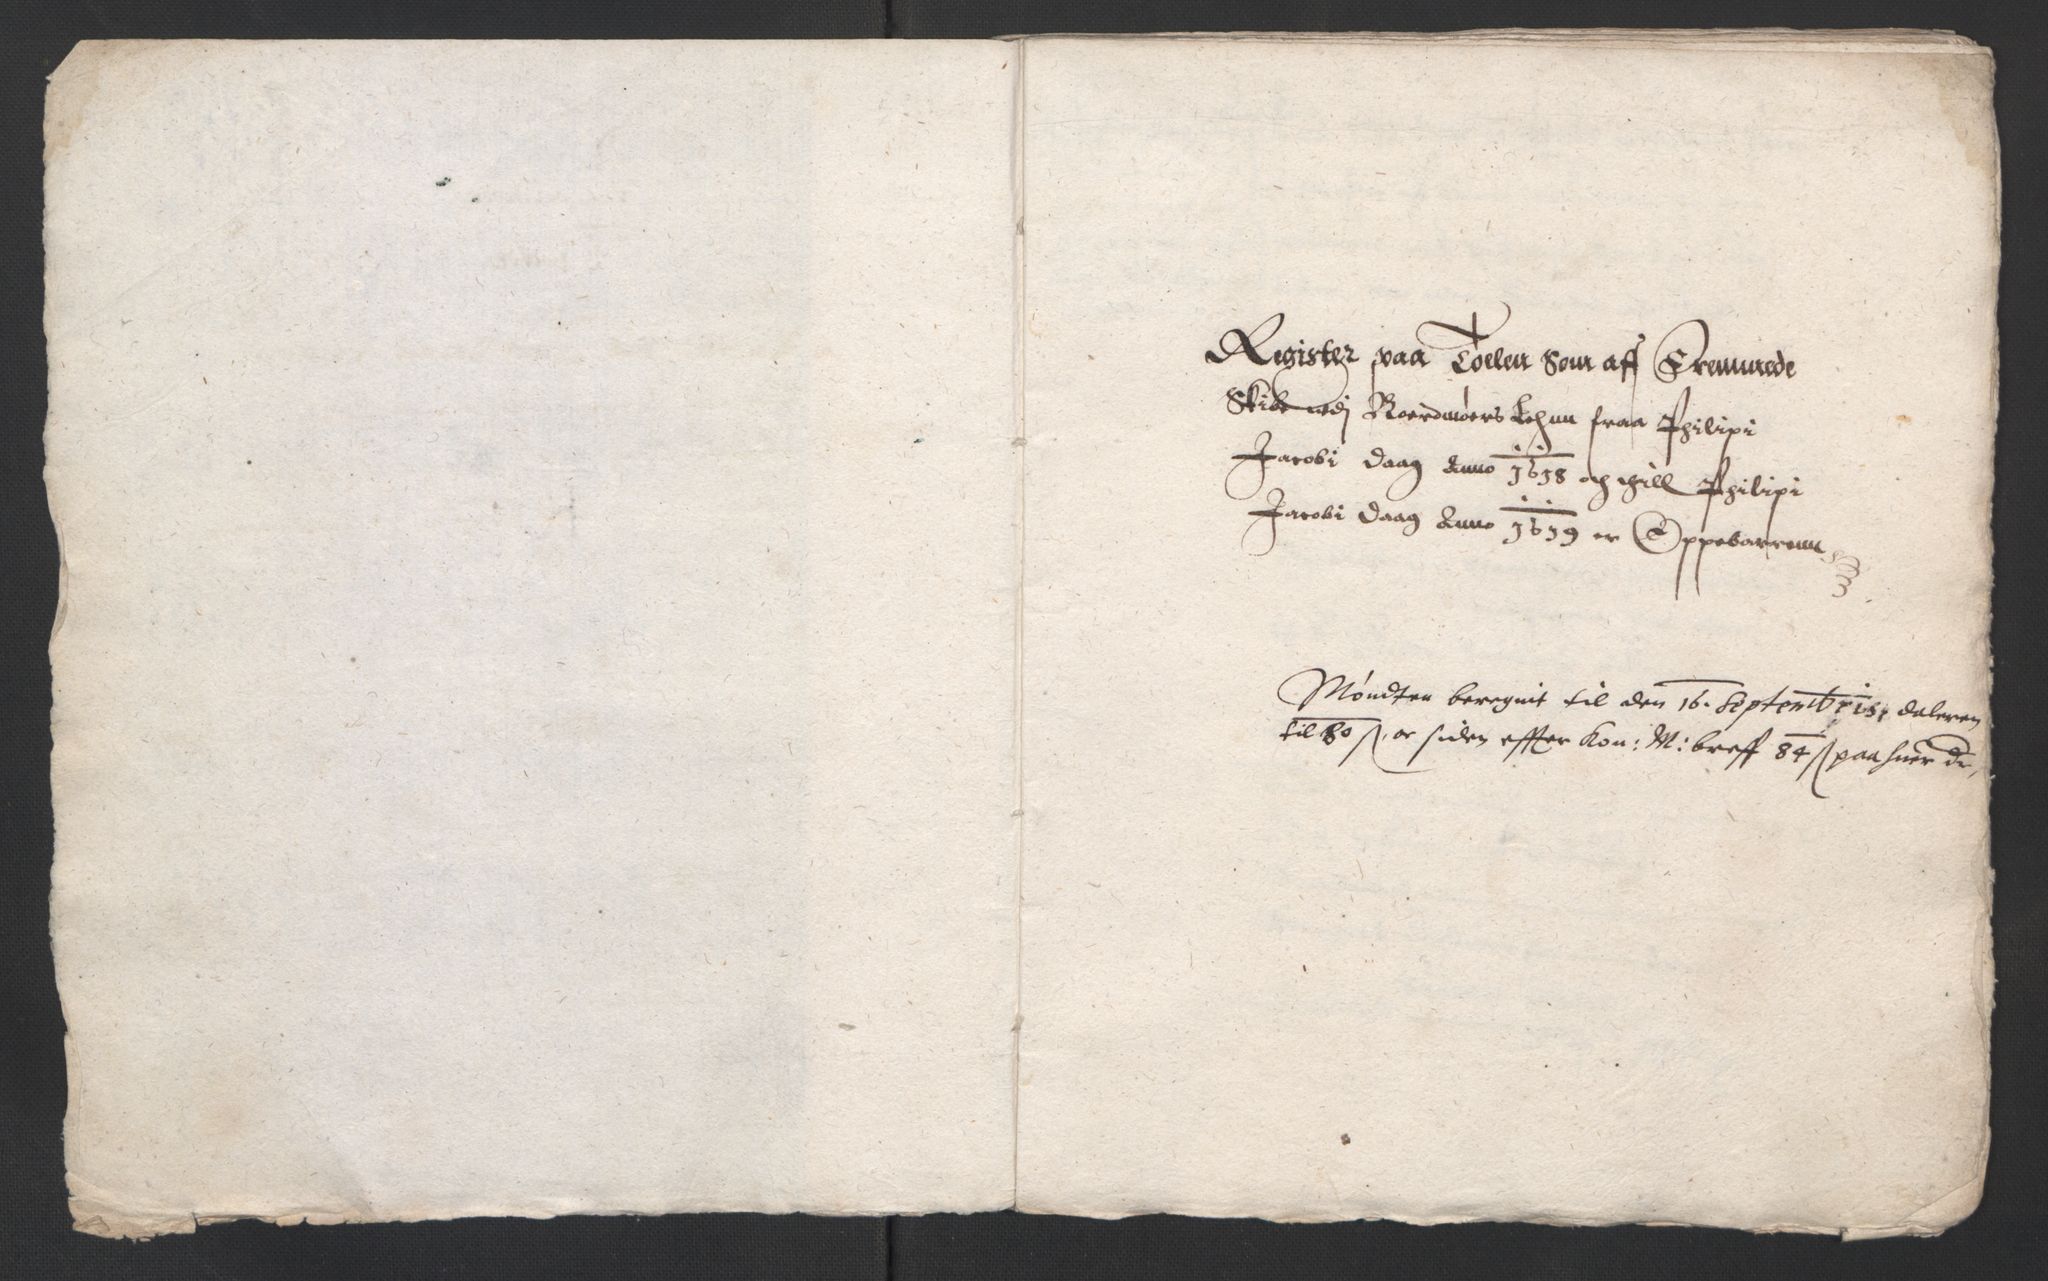 Register paa Tollen Som aff Fremmede
Skibe udj Noerdmøers Lehnn fraa Philipi
Jacobi Daag Anno 1618 och thill Philipi
Jacobi Daag Anno 1619 er Oppebarrenn
Møndten beregnit til den 16. Septembris, daleren
til 80 ß, oc siden effter Kon: M: breff 84 ß paa huer dr,